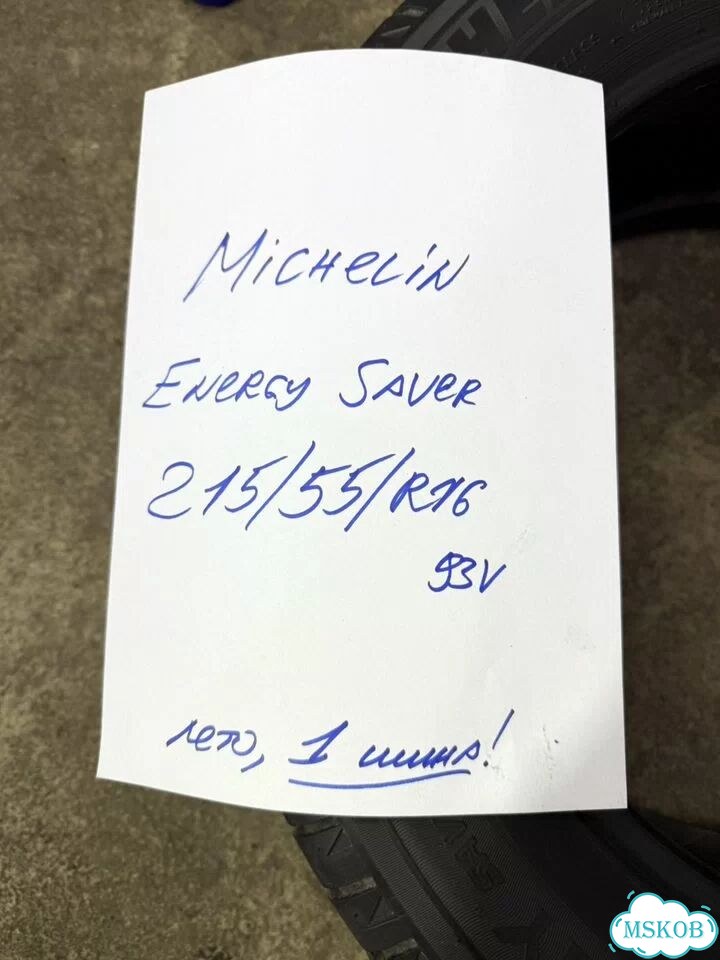 Michelin
Energy Saver
215/55/R16
93V
лето, 1 шина!
MSKOB